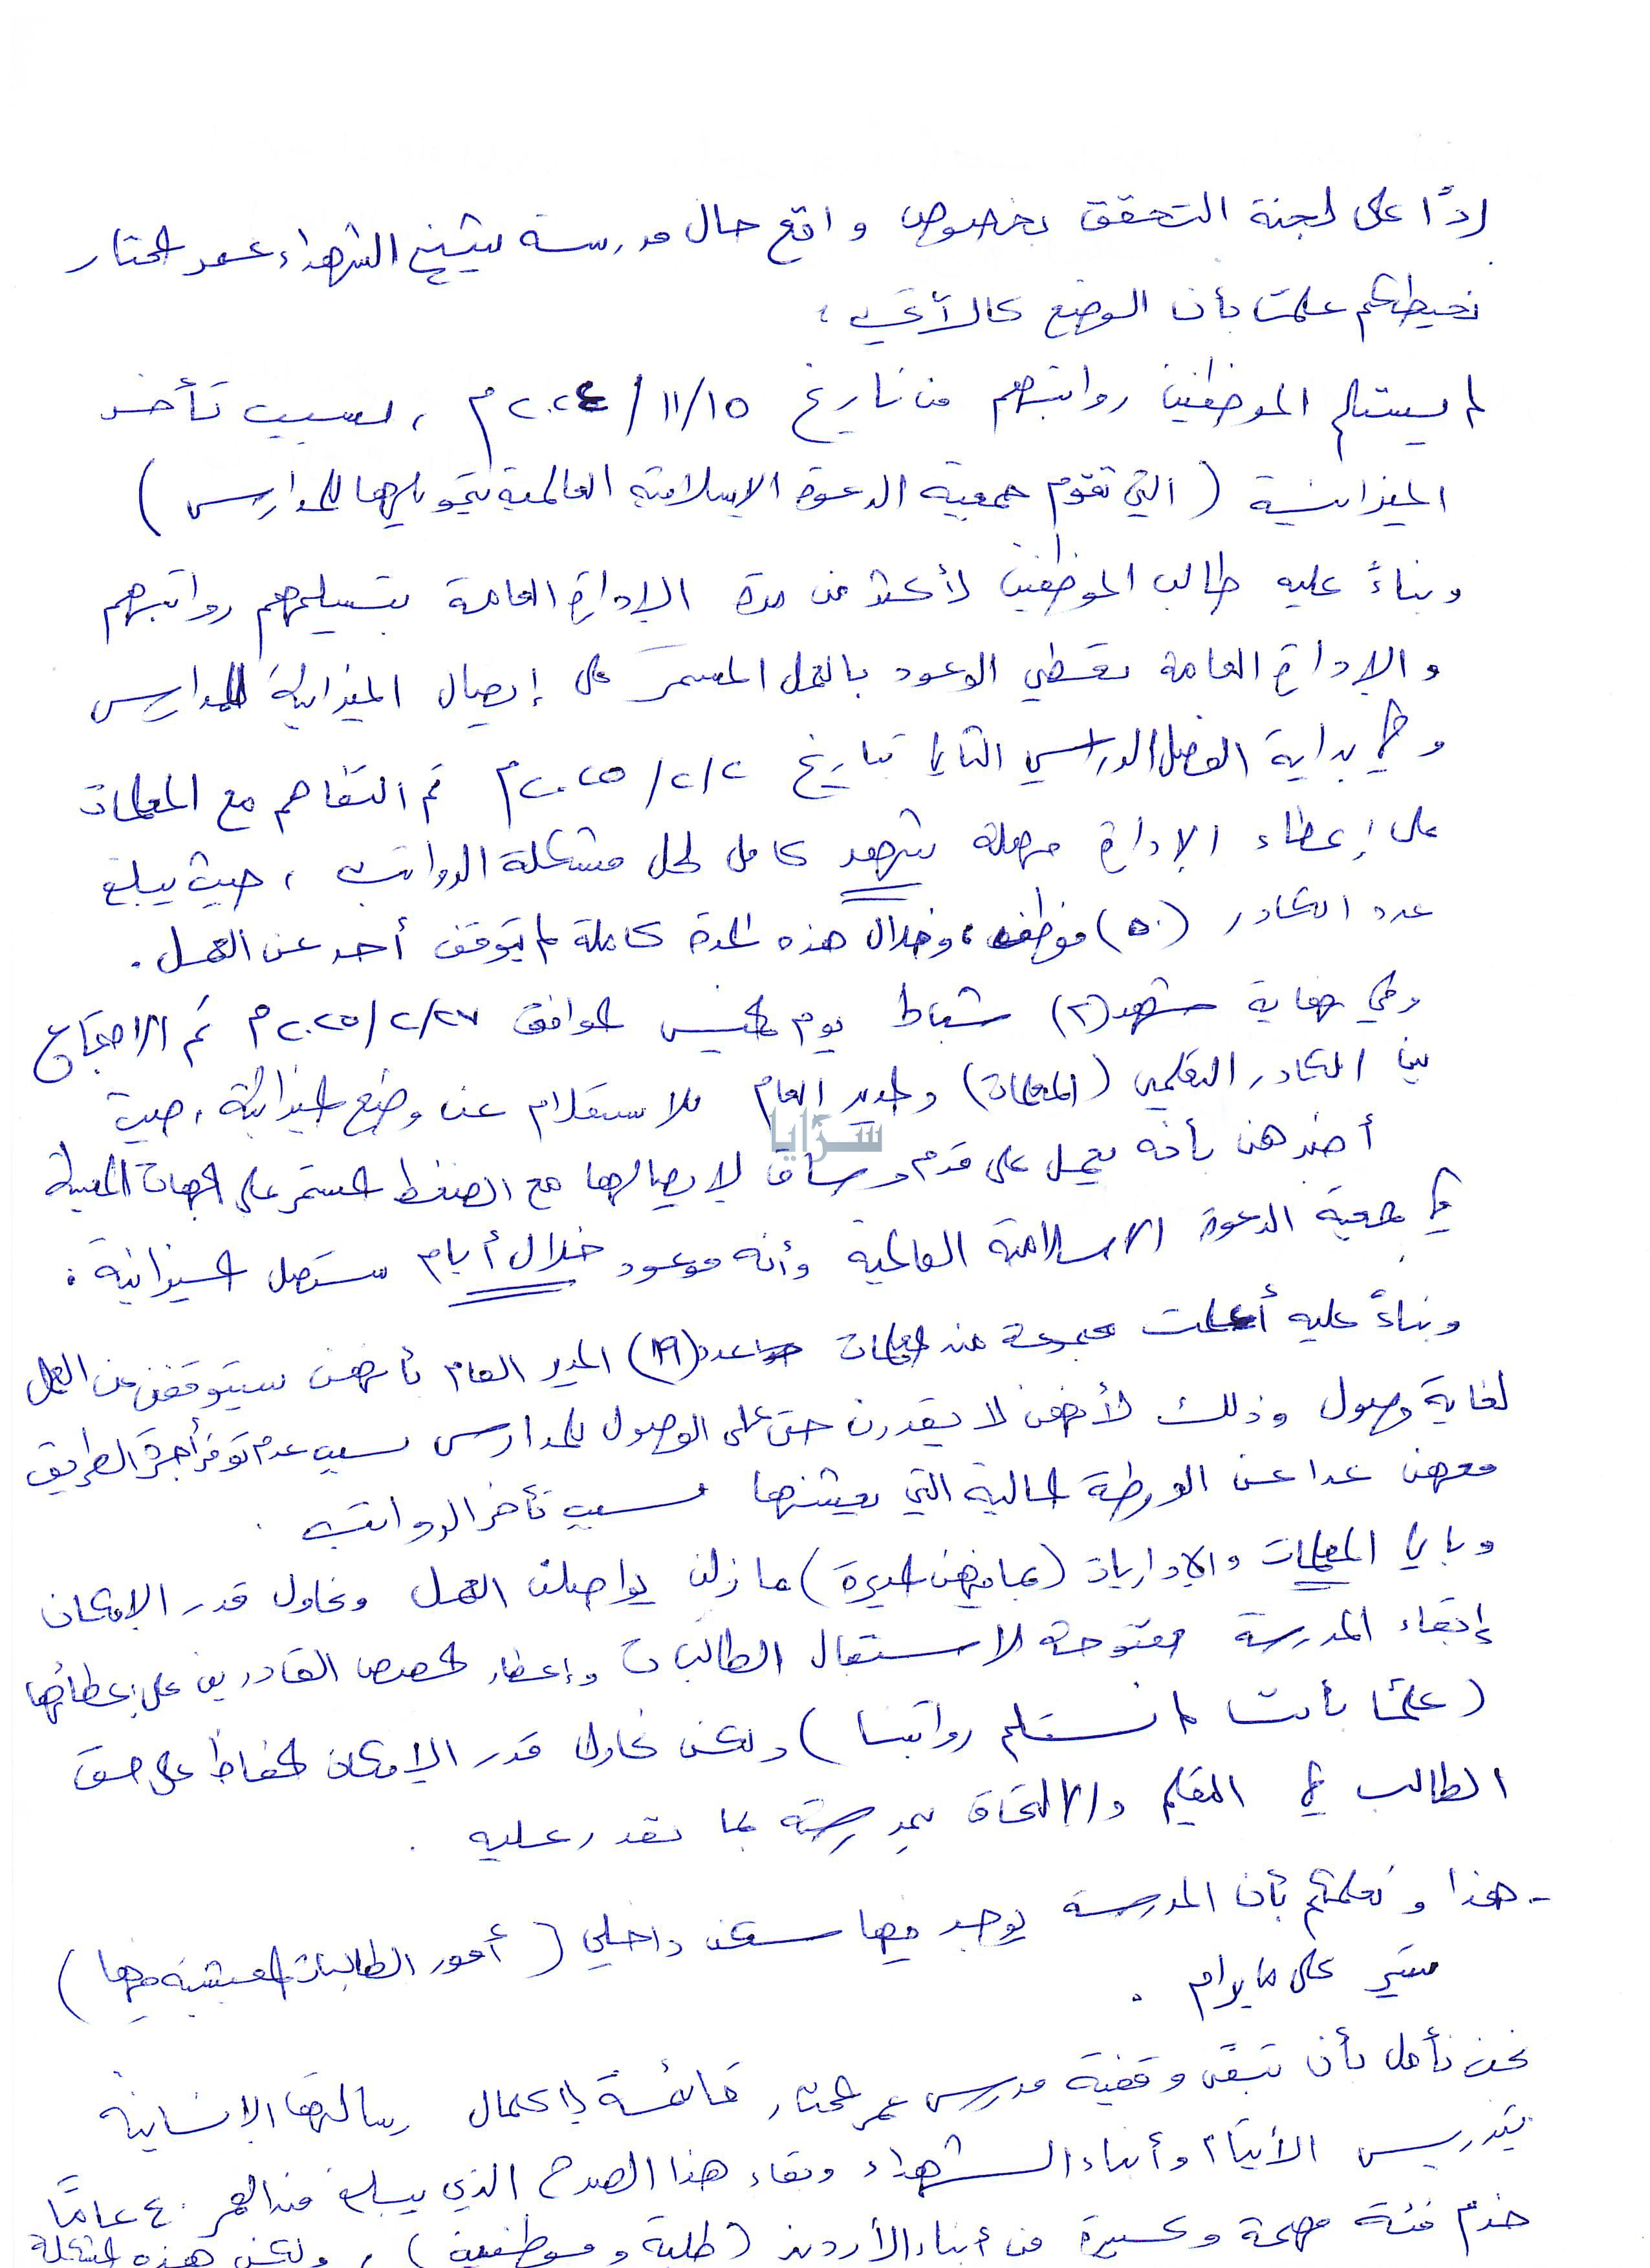 ردًا على لجنة التحقق بخصوص واقع حال مدرسة شيخ الشهداء عمر المختار
نحيطكم علمًا بأن الوضع كالآتي :
لم يستلم الموظفين رواتبهم من تاريخ ١٥/١١/٢٠٢٤م ، بسبب تأخر
الميزانية (التي تقوم جمعية الدعوة الإسلامية العالمية بتحويلها للمدارس)
وبناءً عليه طالب الموظفين لأكثر من مرة الإدارة العامة بتسليمهم رواتبهم
والإدارة العامة تعطي الوعود بالعمل المستمر على إيصال الميزانية للمدارس
وفي بداية الفصل الدراسي الثاني بتاريخ ٢/٢/٢٠٢٥م تم التفاهم مع المعلمات
على إعطاء الإدارة مهلة شهر كامل لحل مشكلة الرواتب ، حيث يبلغ
عدد الكادر (٥٠) موظف ، وخلال هذه المدة كاملة لم يتوقف أحد عن العمل .
وفي نهاية شهر (٢) شباط يوم الخميس الموافق ٢٧/٢/٢٠٢٥م تم الاجتماع
بين الكادر التعليمي (المعلمات) والمدير العام للاستعلام عن وضع الميزانية ، حيث
سرايا
أخبرهن بأنه يعمل على قدم وساق لإيصالها مع الضغط المستمر على الجهات المعنية
في جمعية الدعوة الإسلامية العالمية وأنه موعود خلال أيام ستصل الميزانية :
وبناءً عليه أعلمت مجموعة من المعلمات عدد (١٩) المدير العام بأنهن سيتوقفن عن العمل
لغاية وصول وذلك لأنهن لا يقدرن حتى على الوصول للمدارس بسبب عدم توفر أجرة الطريق
معهن عدا عن الورطة المالية التي يعشنها بسبب تأخر الرواتب .
وباقي المعلمات والإداريات (بما فيهن المديرة) ما زلن يواصلن العمل ونحاول قدر الإمكان
إبقاء المدرسة مفتوحة لاستقبال الطالبات وإعطاء الحصص القادرين على إعطائها
(علمًا بأننا لم نستلم رواتبنا) ولكن نحاول قدر الإمكان الحفاظ على حق
الطالب في التعليم والالتحاق بمدرسته بما نقدر عليه .
- هذا ونعلمكم بأن المدرسة يوجد فيها سكن داخلي (أمور الطالبات المعيشية فيها)
تسير على ما يرام .
نحن نأمل بأن تبقى وقفية مدرسة عمر المختار قائمة لإكمال رسالتها الإنسانية
بتدريس الأيتام وأبناء الشهداء وبقاء هذا الصرح الذي يبلغ من العمر ٤٠ عامًا
خدم فئة مهمة وكبيرة من أبناء الأردن (طلبة وموظفين) ، ولكن هذه المشكلة